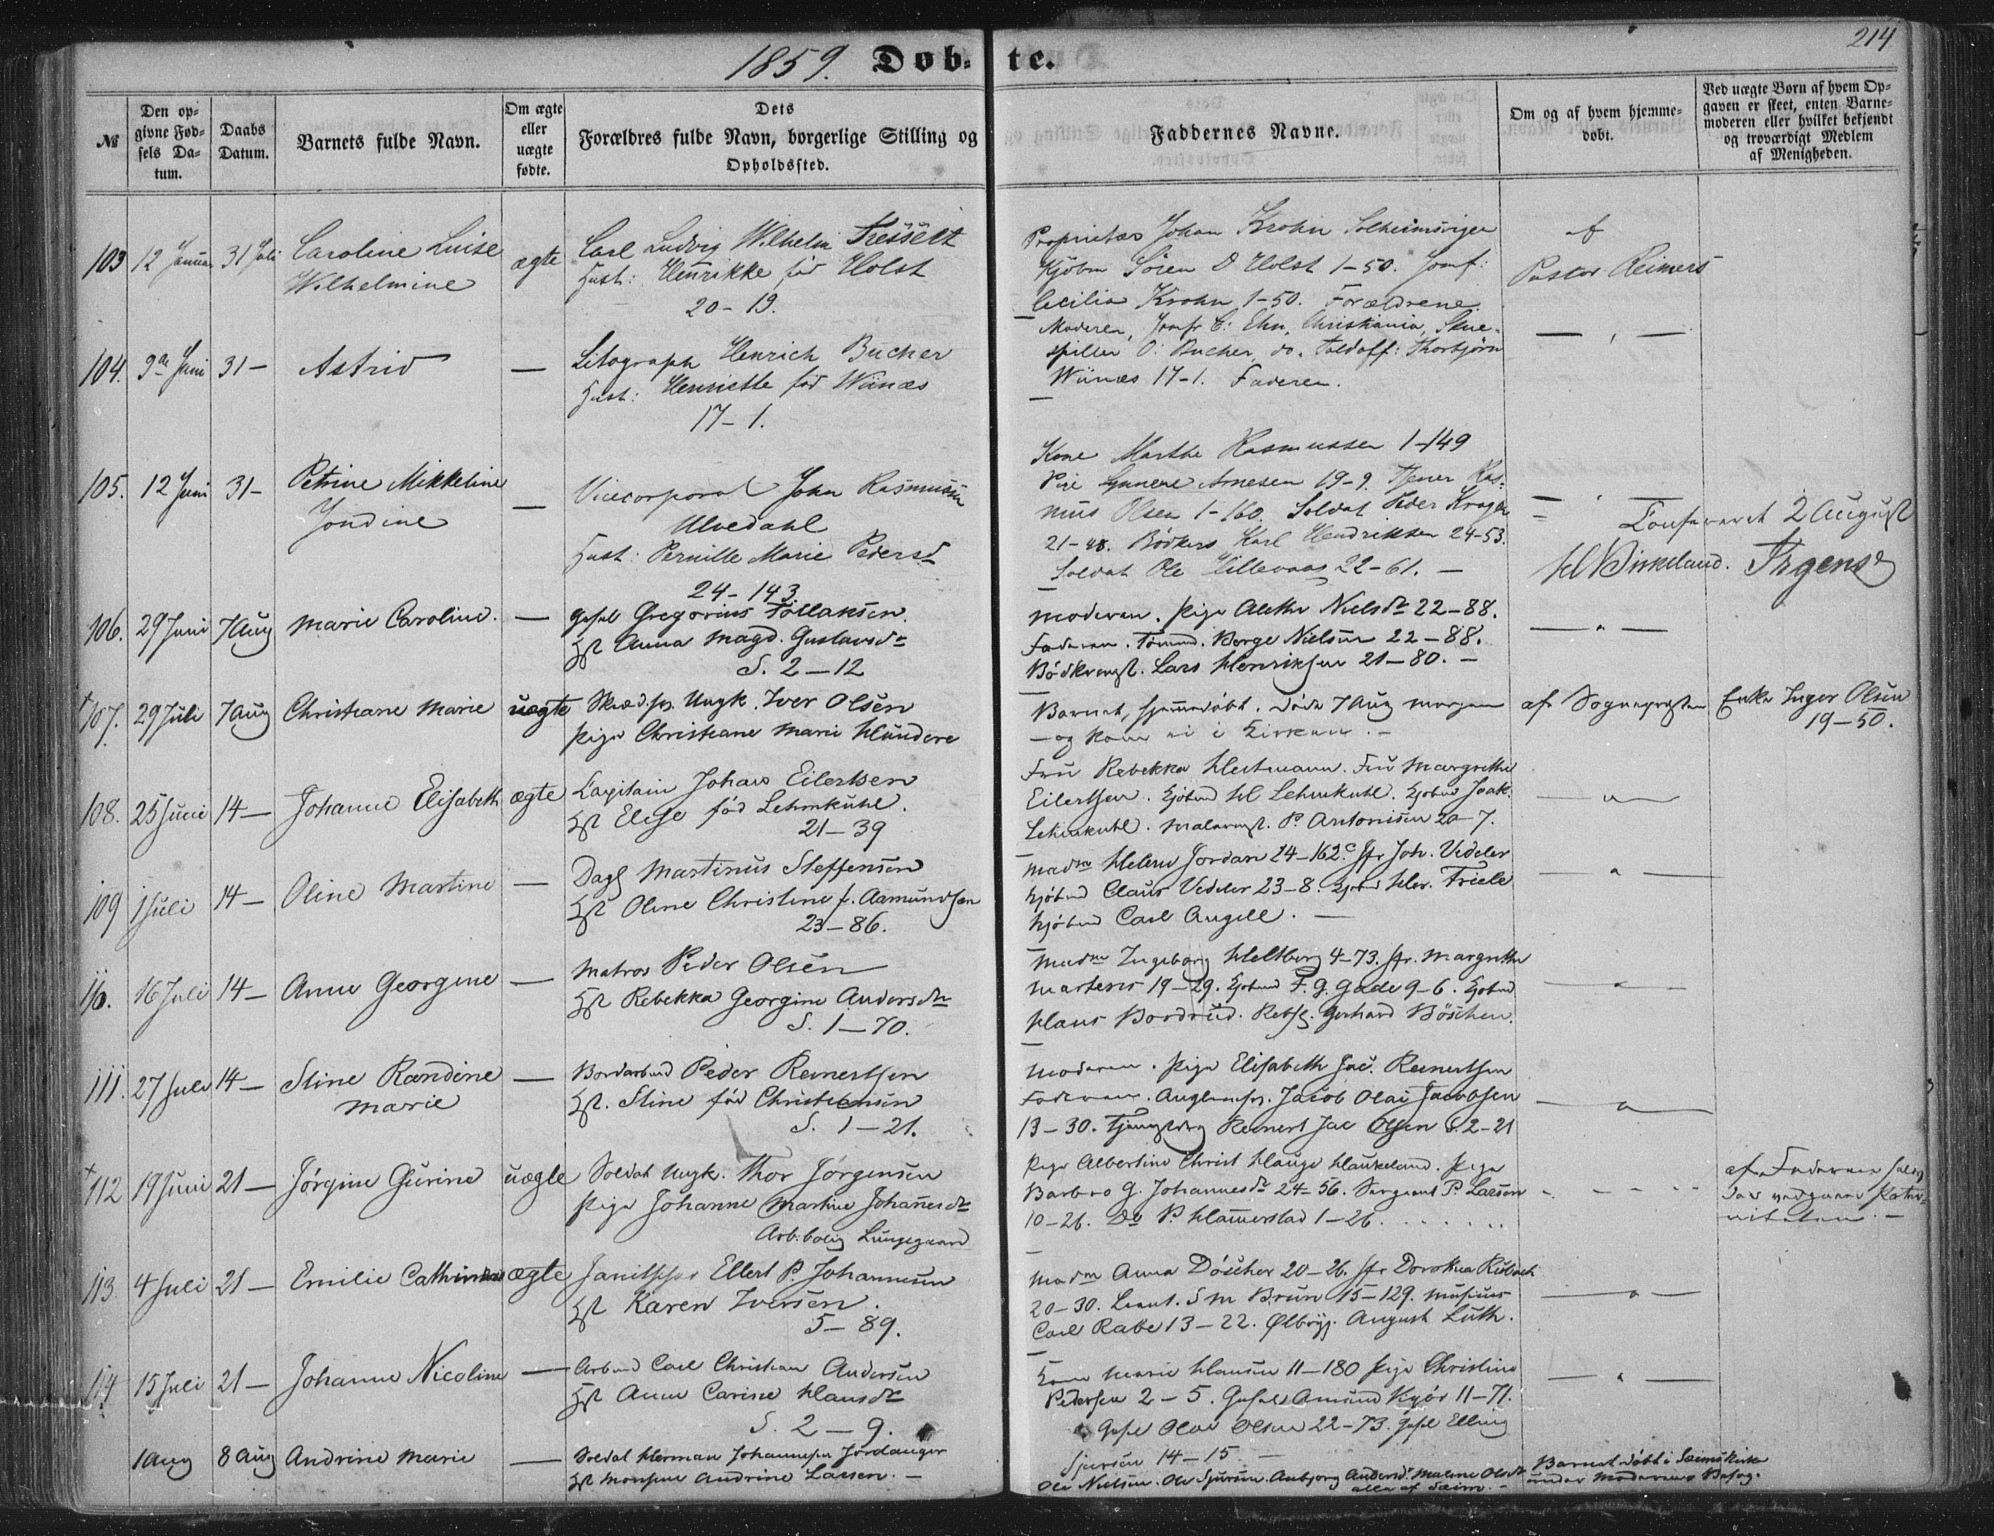 214
1859. Døb-te.
№
Den op-
givne Fød-
sels Da-
tum.
Daabs
Datum.
Barnets fulde Navn.
Om ægte
eller
uægte
fødte.
Dets
Forældres fulde Navn, borgerlige Stilling og
Opholdssted.
Faddernes Navne.
Om og af hvem hjemme-
døbt.
Ved uægte Børn af hvem Op-
gaven er skeet, enten Barne-
moderen eller hvilket bekjendt
og troværdigt Medlem
af Menigheden.
103 12 Januar 31 Juli Caroline Luise
Wilhelmine
ægte
Carl Ludvig Wilhelm Tresselt
Hust: Henrikke fød Holst
20-19.
Proprietær Johan Krohn Solheimsvigen
Kjøbm Sören D Holst 1-50. Jomf:
Cecilia Krohn 1-50. Forældrene
af
Pastor Reimers
104. 9de Juni 31 - Astrid —
Litograph Henrich Bucher
Hust: Henriette fød Wiinæs
17-1.
Moderen, Jomfr C: Ehn, Christiania, Skue-
spiller O: Bucher, do. Toldoff: Thorbjørn
Wiinæs 17-1. Faderen.
— , —
105. 12 Juni 31 - Petrine Mikkeline
Jondine
—
Vicecorporal John Rasmussen
Ulvedahl
Hust: Pernille Marie Pedersd
24-143
Kone Marthe Rasmussen 1-149
Pige Gunnere Arnesen 19-9. Tjener Ras-
mus Olsen 1-160. Soldat Peder Kragen
21-48. Bødkers Karl Hendriksen 24-53.
Soldat Ole Hillevaag 22-61. —
Confereret 2 August
H Birkeland. Irgens
106. 29 Juni 7 Aug Marie Caroline. —
Gesel Gregorius Tollaksen.
Hst Anna Magd. Gustavsdr
S. 2-12
Moderen. Pige Alethe Nielsdr 22-88.
Faderen. Tømmd. Børge Nielsen 22-88.
Bødkersvd. Lars Henriksen 21-80. —
— " —
† 107. 29 Juli 7 Aug Christiane Marie uægte
Skrædsv. Ungk. Iver Olsen
Pige Christiane Marie Hundere
Barnet, hjemmedøbt. døde 7 Aug morgen
— og kom ei i Kirken. —
af Sognepresten
Enke Inger Olsen
19-50.
108. 25 Juni 14 - Johanne Elisabeth ægte
Capitain Johan Eilertsen
Hst Elise fød Lehmkuhl.
21-39
Fru Rebekka Hertmann. Fru Margrethe
Eilertsen. Kjøbmd H Lehmkuhl. Kjøbmd Joak.
Lehmkuhl. Malersvd. P. Antonisen 20-7.
— " —
109 1 Juli 14 - Oline Martine —
Dagl Martinus Steffensen
Hst Oline Christine f. Aamundsen
23-86.
Madm Helene Jordan 24-162c Jfr Joh. Vedeler
Kjøbmd Claus Vedeler 23-8. Kjøbmd Hr. Friele
Kjøbmd Carl Angell. —
— " —
110. 16 Juli 14 - Anne Georgine —
Matros Peder Olsen
Hst Rebekka Georgine Andersdr
S. 1-70.
Madm Ingeborg Heltberg 4-73. Jfr. Margrethe
Martens 19-29. Kjøbmd F. G. Gade 9-6. Kjøbmd
Hans Bordrud. Rebsl. Gerhard Böschen.
— " —
111. 27 Juli 14 - Stine Randine
Marie
—
Bordarbmd Peder Reinertsen
Hst. Stine fød Christensen
S. 1-21.
Moderen. Pige Elisabeth Jac. Reinertsen
Faderen. Jacob Olai Jacobsen
13-30. Reinert Jac Olsen S. 2-21
— " —
† 112 19 Juni 21 - Jørgine Gurine uægte
Soldat Ungk. Thor Jørgensen
Pige Johanne Martine Johannesdr
Arb:bolig Lungegaard
Pige Albertine Christ Hauge Haukeland. Pige
Barbro G. Johannesdr 24-56. Sergeant P. Larsen
10-26. Do P. Hammerstad 1-26.
af Faderen selv
der vedgaaer Pater-
niteten. —
113. 4 Juli 21 - Emilie Cathrine ægte
Janitschar Ellert P. Johannesen
Hst Karen Iversen.
5-89.
Madm Anna Döscher 20-26. Jfr Dorothea
20-30. Lieut. S M Bruun 15-129. Musicus
Carl Rabe 13-22. Ølbrygg. August Luth.
— " —
114 15 Juli 21 - Johanne Nicoline —
Arbmd Carl Christian Andersen
Hst Anne Carine Hansdr
S. 2-9.
Kone Marie Hansen 11-180 Pige Christine
Pedersen 2-5. Gesel Amund Kyör 11-71.
Gesel Olai Olsen 22-73. Gesel Elling
Sjursen 14-15 —
— " —
1 Aug 8 Aug Andrine Marie —
Soldat Herman Johannesen Jordanger
Hst Monsine Andrine Larsen. —
Ole Nielsen. Ole Sjursen. Anbjørg Andersdr. Malene Olsdr
alle af Sæim. —
Barnet døbt i Sæims Kirke
under Moderens Besøg.